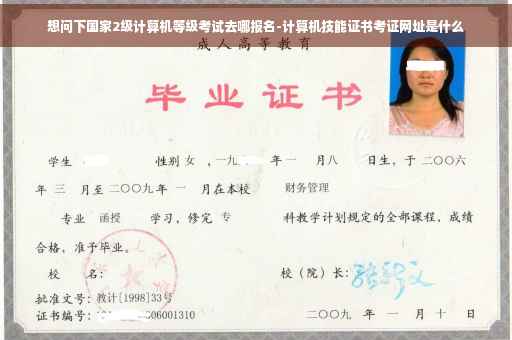 想问下国家2级计算机等级考试去哪报名-计算机技能证书考证网址是什么
成人高等教育
毕业证书
学生 性别 女 ，一九 年 一 月 八 日生，于 二〇〇六
年 三 月至 二〇〇九 年 一 月在本校 财务管理
专业 函授 学习，修完 专 科教学计划规定的全部课程，成绩
合格，准予毕业。
校 名： 校（院）长：
批准文号：教计[1998]33号
证书编号： 06001310 二〇〇九 年 一 月 十 日